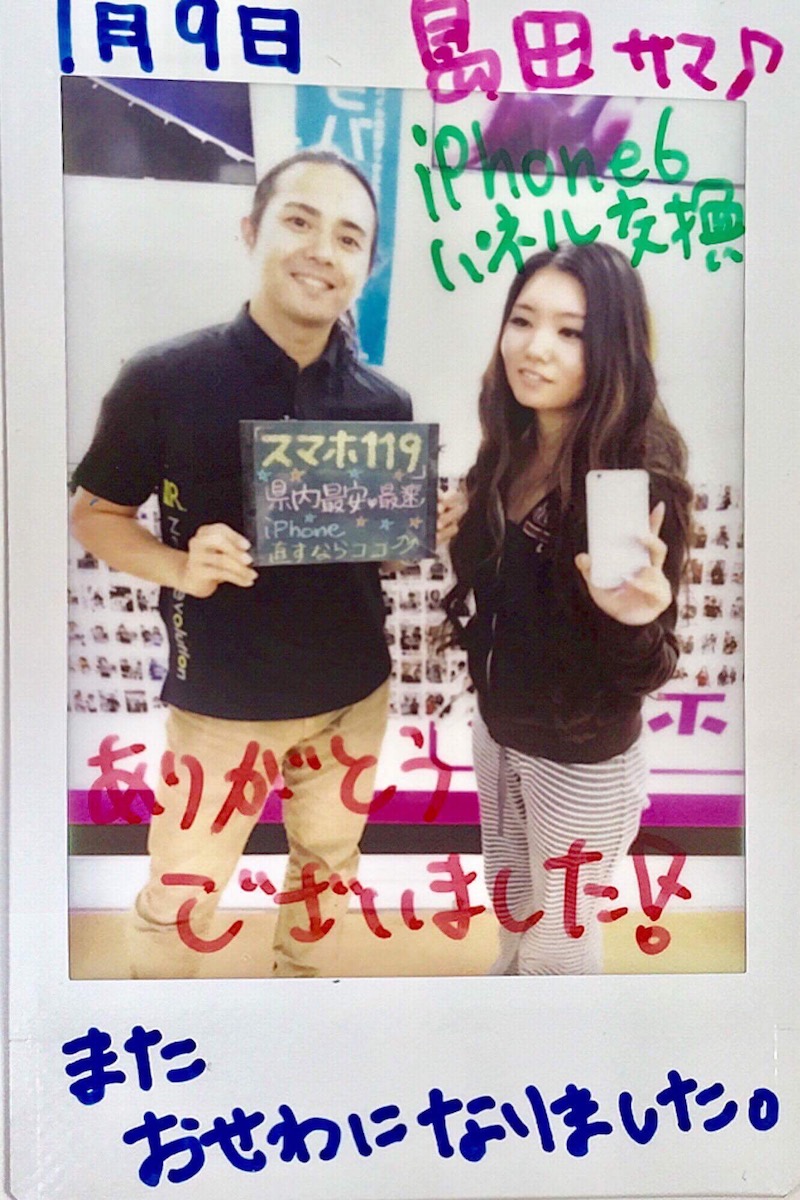 1月9日
島田サマ♪
iPhone6
パネル交換
スマホ119
県内最安♥最速
iPhone
直すならココ
R
evolution
ホ
ありがとう
ございました!
また
おせわになりました。